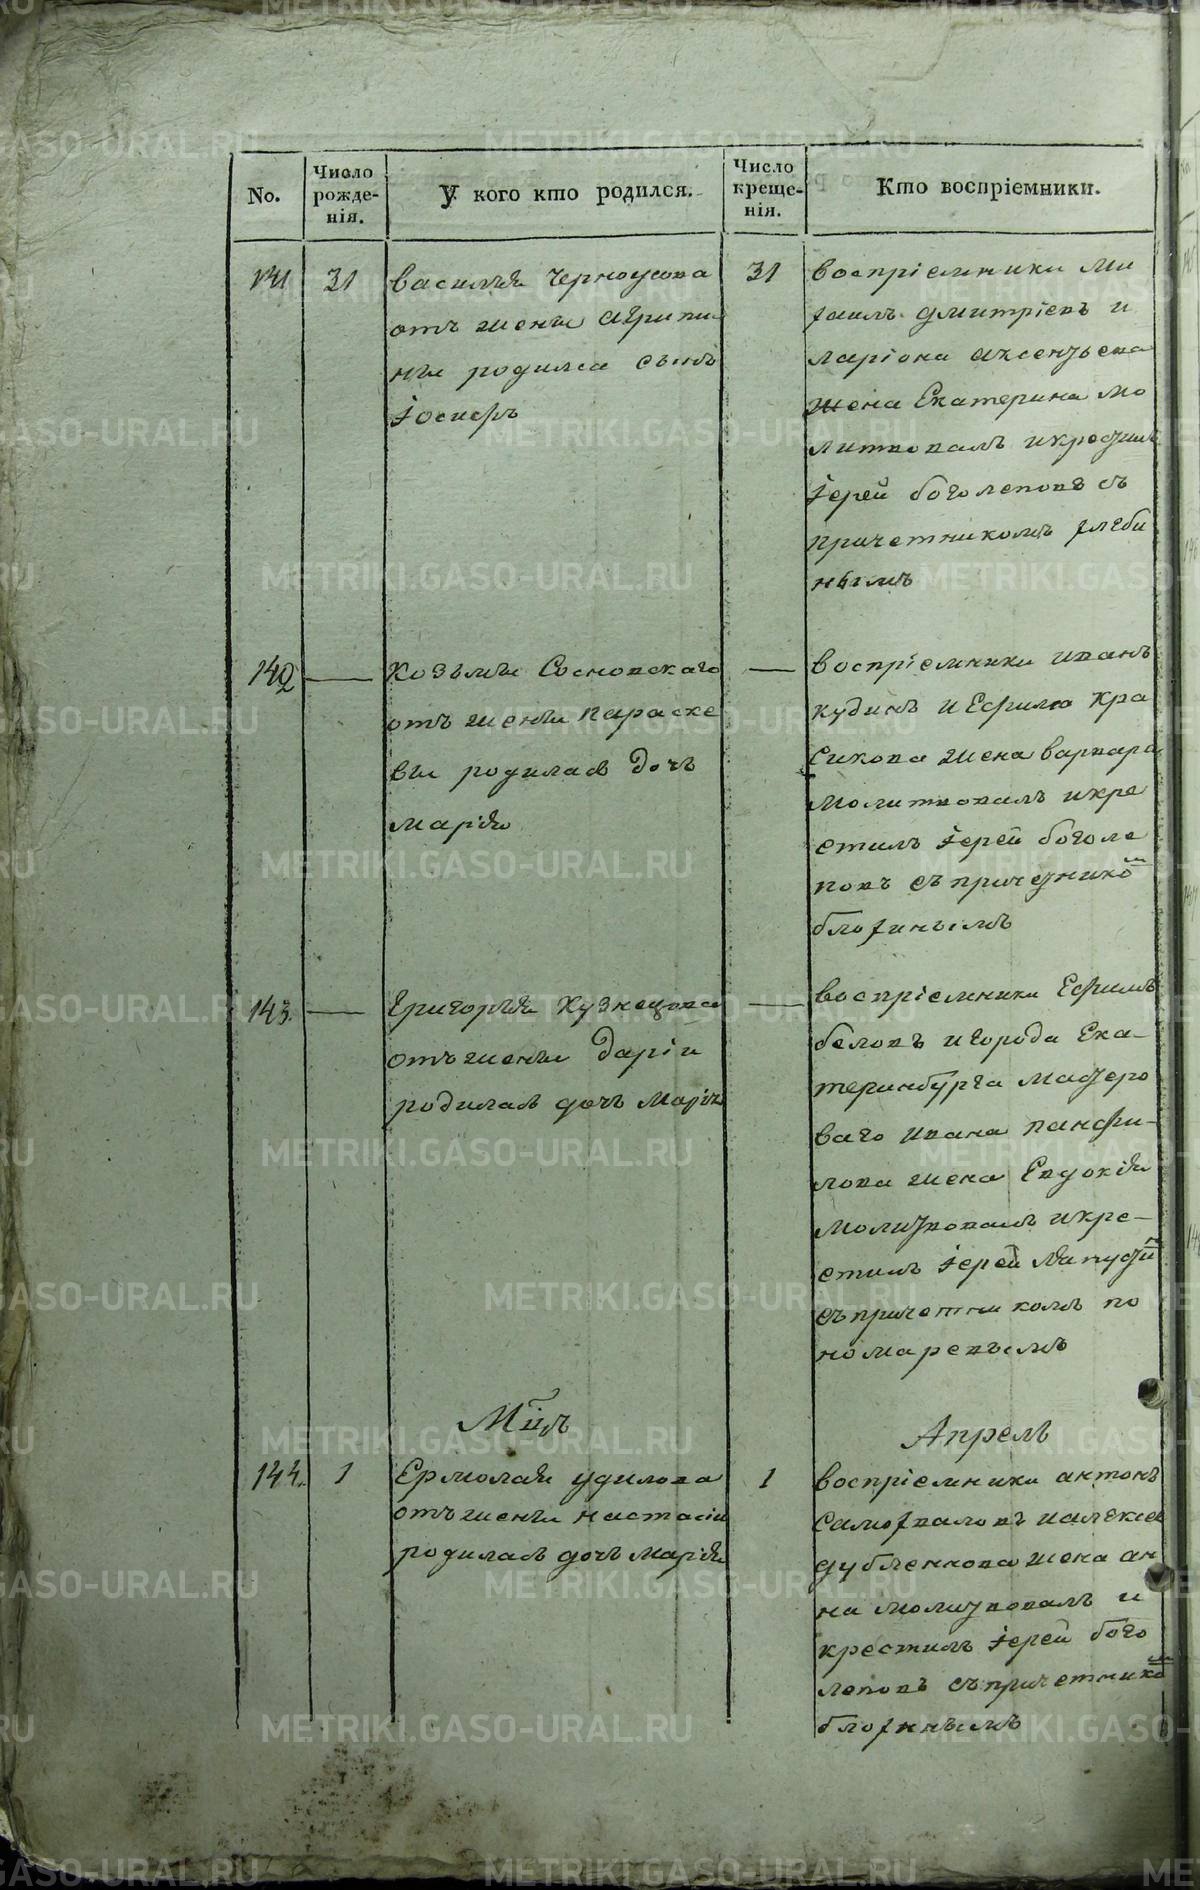 No.
Число рожде-нія.
У кого кто родился.
Число креще-нія.
Кто воспріемники.
141
31
василья Черноусова
отъ жены Агрипи
ны родился сынъ
Іосифъ
31
воспріемники Ми
хаилъ дмитріевъ и
ларіона аксеньева
жена Екатерина мо
литвовалъ и крестилъ
Іерей боголеповъ съ
причетникомъ
нымъ
142
Козьмы Сосновскаго
отъ жены параске
вы родилась дочь
марія
воспріемники иванъ
кудинъ и Ефима Кра
сикова жена варвара
молитвовалъ и кре
стилъ Іерей боголе
повъ съ причетнико м
143.
Григорья Кузнецова
отъ жены Даріи
родилась дочь Марія
воспріемники Ефимъ
беловъ и города Ека-
теринбурга мастеро
ваго ивана панфи-
лова жена Евдокія
молитвовалъ и кре-
стилъ Іерей
съ причетникомъ по
номаревымъ
Мць
Апрель
144.
1
Ермолая удилова
отъ жены настасіи
родилась дочь марія
1
воспріемники антонъ
Самохваловъ и алексея
дубленкова жена ан
на молитвовалъ и
крестилъ Іерей бого
леповъ съ причетнико м
METRIKI.GASO-URAL.RU